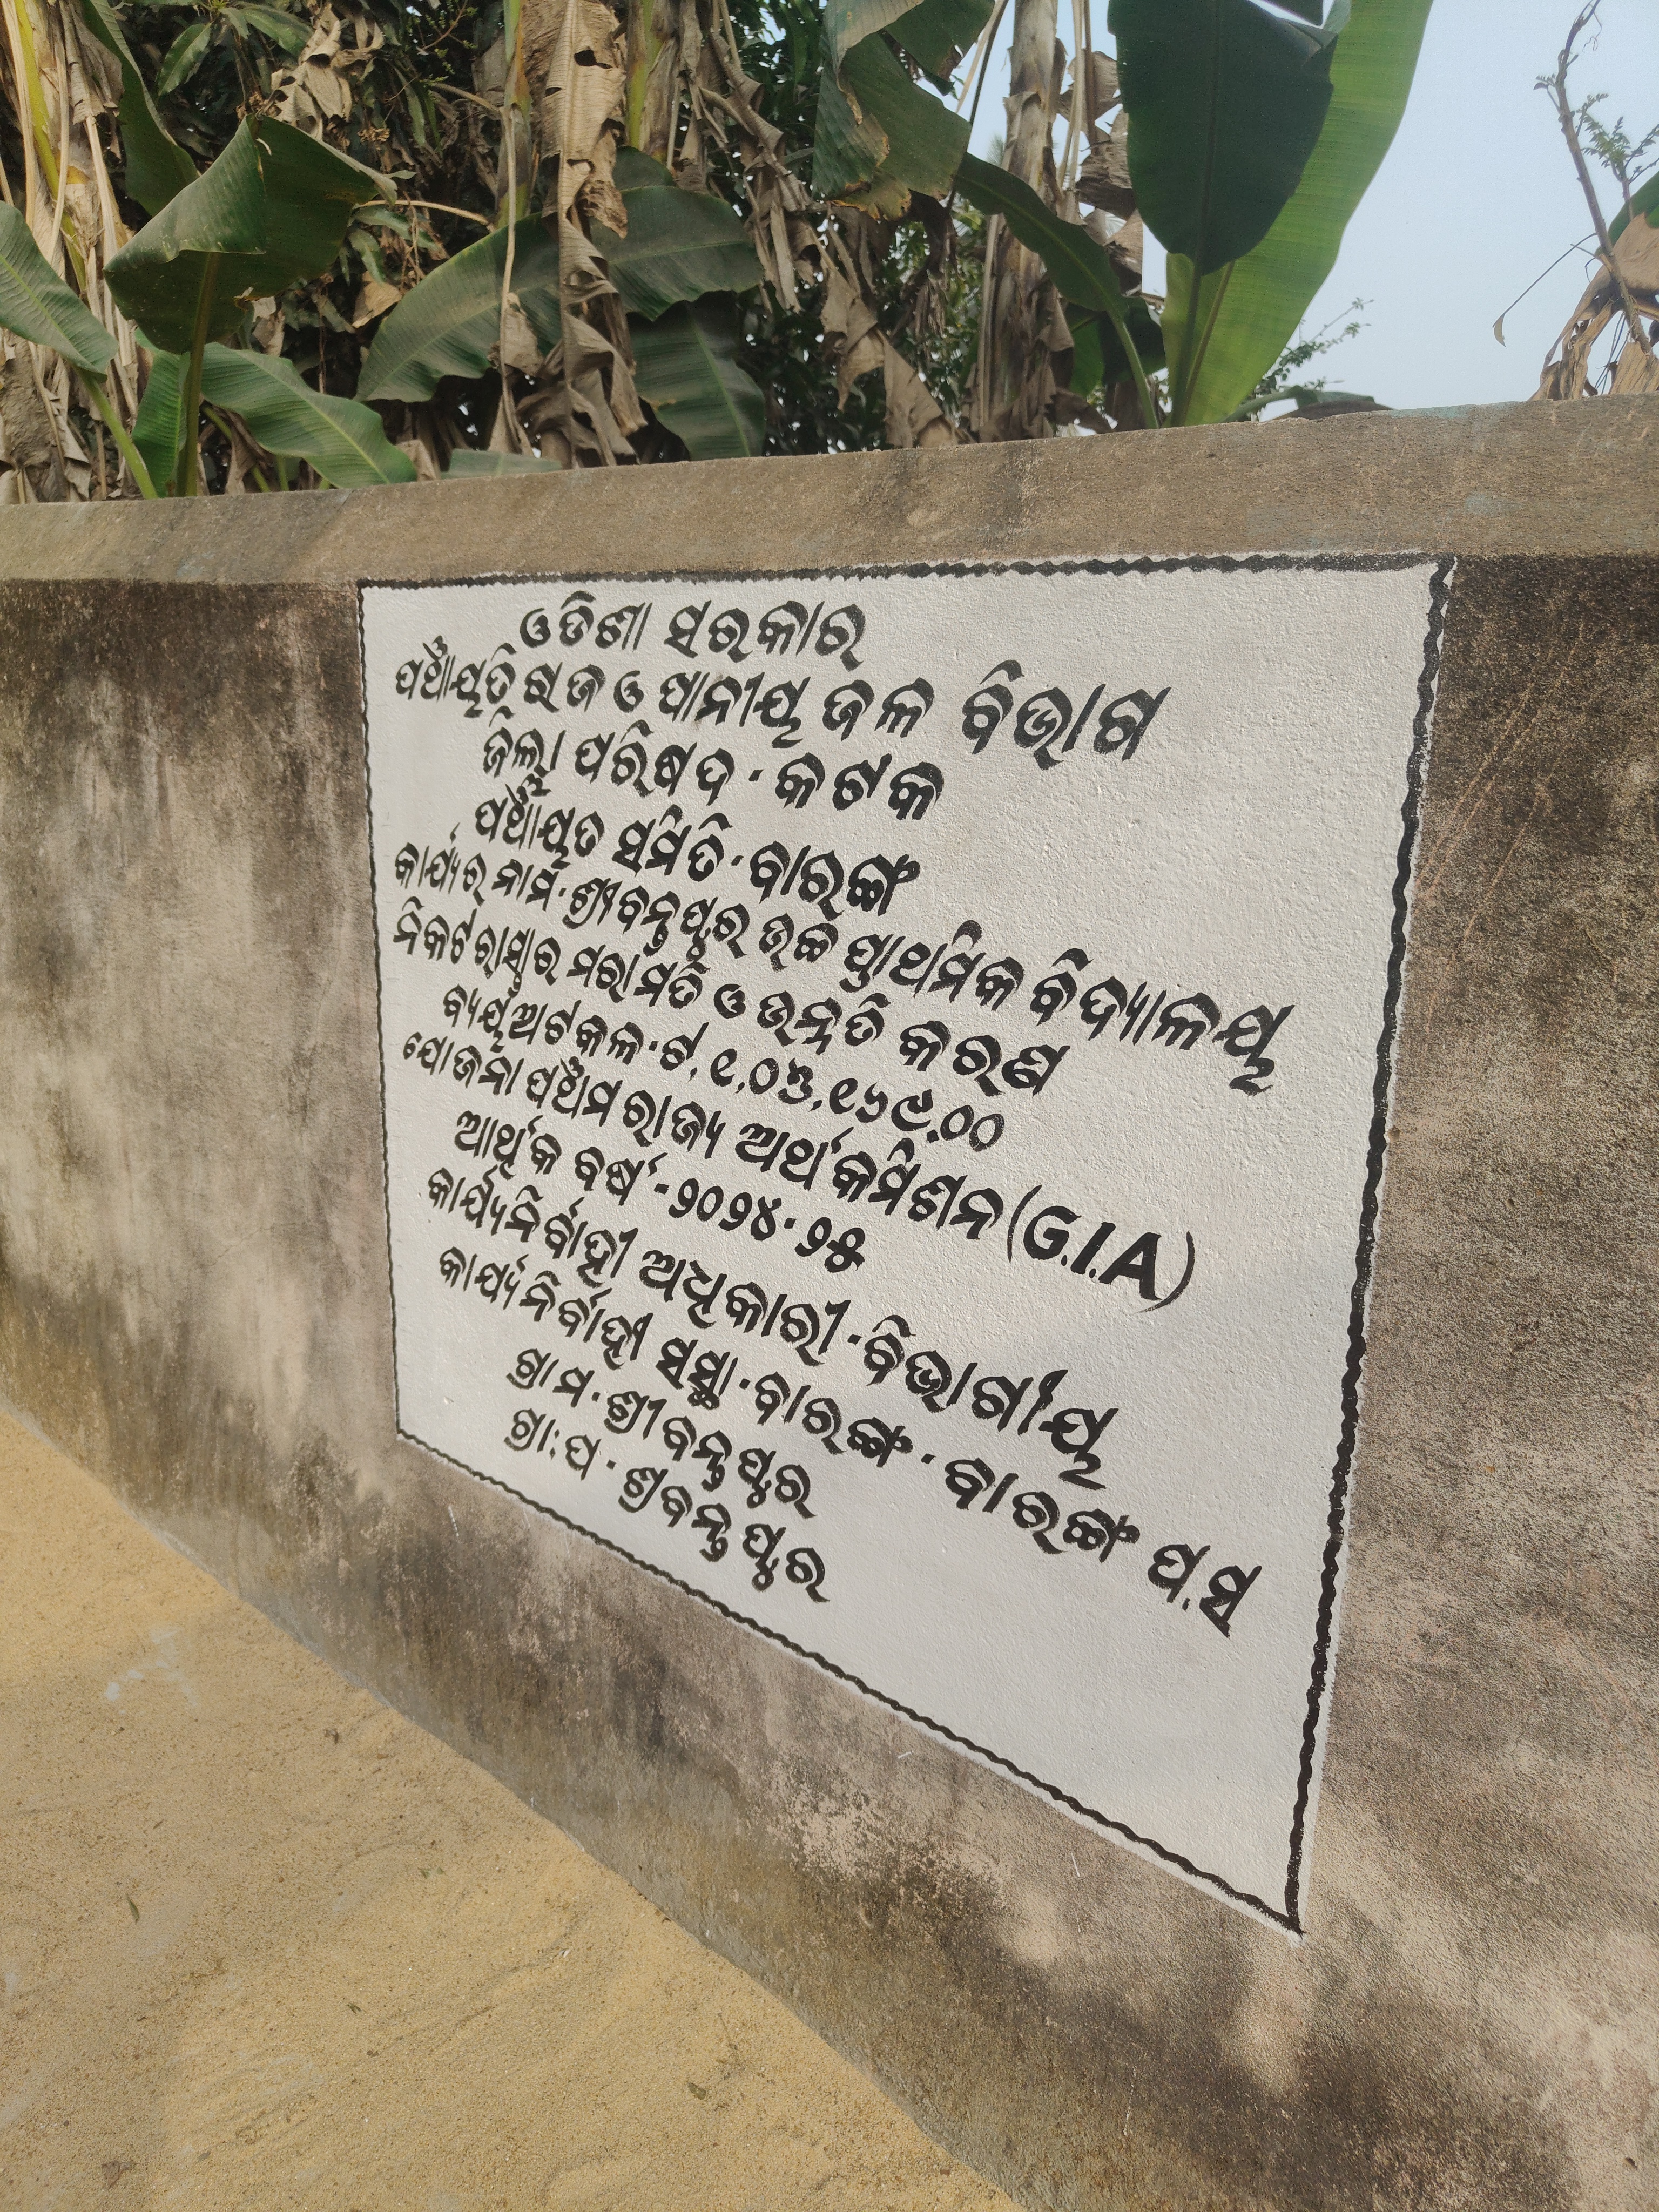 ଓଡିଶା ସରକାର
ପଞ୍ଚାୟତି ରାଜ ଓ ପାନୀୟ ଜଳ ବିଭାଗ
ଜିଲ୍ଲା ପରିଷଦ - କଟକ
ପଞ୍ଚାୟତ ସମିତି - ବାରଙ୍ଗ
କାର୍ଯ୍ୟର ନାମ - ଶ୍ରୀବନ୍ତପୁର ଉଚ୍ଚ ପ୍ରାଥମିକ ବିଦ୍ୟାଳୟ
ନିକଟ ରାସ୍ତାର ମରାମତି ଓ ଉନ୍ନତି କରଣ
ବ୍ୟୟ ଅଟକଳ - ଟ. ୧,୦୫,୧୬୯.୦୦
ଯୋଜନା ପଞ୍ଚମ ରାଜ୍ୟ ଅର୍ଥ କମିଶନ (G.I.A)
ଆର୍ଥିକ ବର୍ଷ - ୨୦୨୪ - ୨୫
କାର୍ଯ୍ୟନିର୍ବାହୀ ଅଧିକାରୀ - ବିଭାଗୀୟ
କାର୍ଯ୍ୟନିର୍ବାହୀ ସଂସ୍ଥା - ବାରଙ୍ଗ - ବାରଙ୍ଗ ପ.ସ
ଗ୍ରାମ - ଶ୍ରୀବନ୍ତପୁର
ଗ୍ରା:ପ - ଶ୍ରୀବନ୍ତପୁର